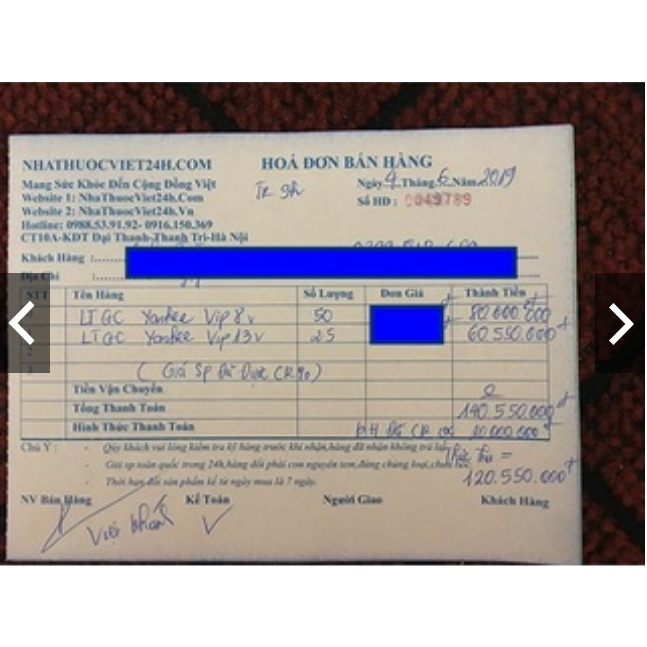 NHATHUOCVIET24H.COM HOÁ ĐƠN BÁN HÀNG
Mang Sức Khỏe Đến Cộng Đồng Việt
Ngày 4 Tháng 6 Năm 2019
Website 1: NhaThuocViet24h.Com
Số HD : 0049789
Website 2: NhaThuocViet24h.Vn
Hotline: 0988.53.91.92- 0916.150.369
CT10A-KĐT Đại Thanh-Thanh Trì-Hà Nội
Khách Hàng :
Địa Chỉ :
STT Tên Hàng Số Lượng Đơn Giá Thành Tiền
LTGC Yankee Vip 8v 50 80.000.000đ
LTGC Yankee Vip 13v 25 60.550.000đ
2
3 ( Giá Sp Đã Được CK )
Tiền Vận Chuyển 0
Tổng Thanh Toán 140.550.000đ
Hình Thức Thanh Toán Đã CK 20.000.000đ
Chú Ý : - Qúy khách vui lòng kiểm tra kỹ hàng trước khi nhận,hàng đã nhận không trả lại
- Gửi sp toàn quốc trong 24h,hàng đổi phải còn nguyên tem,đúng chủng loại,chưa
Thực thu =
- Thời hạn đổi sản phẩm kể từ ngày mua là 7 ngày.
120.550.000đ
NV Bán Hàng Kế Toán Người Giao Khách Hàng